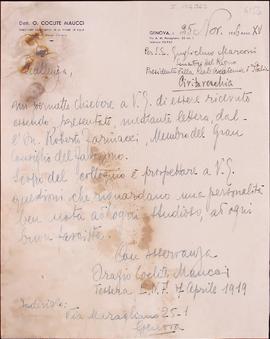 Dott. O. COCLITE MAUCCI
GENOVA, 25 Nov. XV
Per S.E. Guglielmo Marconi
Senatore del Regno
Presidente della Reale Accademia d'Italia
Civitavecchia
Eccellenza,
mi permetto chiedere a V.E. di essere ricevuto
essendo presentato, mediante lettera, dal-
l'On. Roberto Farinacci, Membro del Gran
Consiglio del Fascismo.
Scopo del colloquio è prospettare a V.E.
questioni che riguardano una personalità
ben nota ad ogni studioso, ad ogni
buon fascista.
Con osservanza
Orazio Coclite Maucci
Tessera 7 Aprile 1919
Indirizzo:
Via Maragliano 25-1
Genova